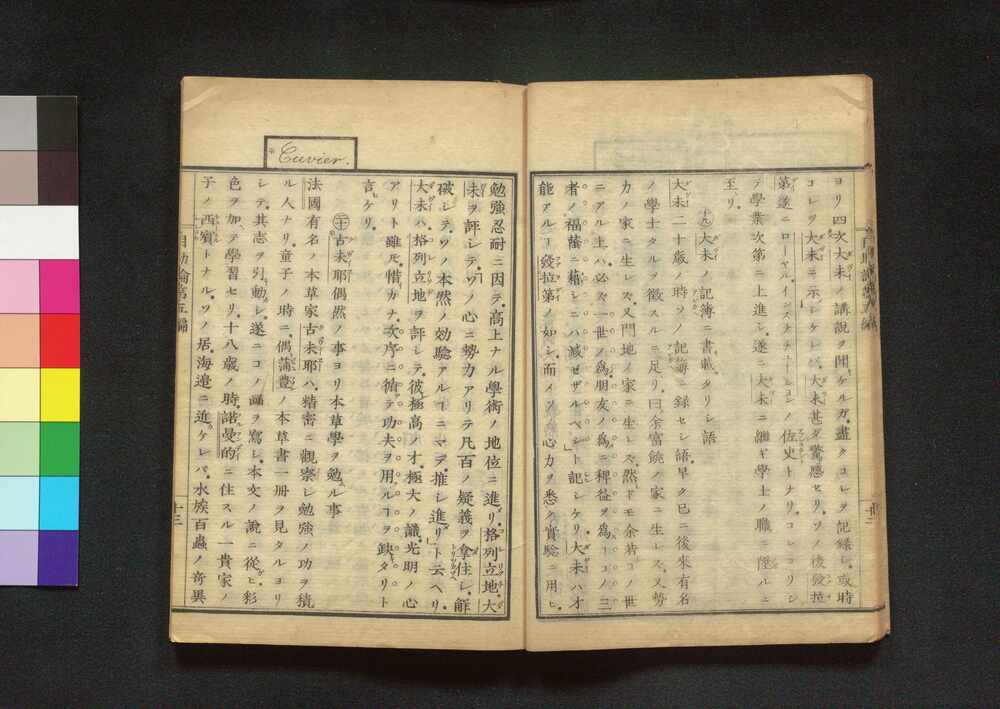 ヨリ四次大未ノ講説ヲ聞ケルガ。盡クコレヲ記錄シ。或時
コレヲ大未ニ示シケレバ。大未甚ダ驚感セリ。ソノ後發拉
第遂ニローヤル インスチチーションノ佐史トナリ。コレヨリシ
テ學業次第ニ上進シ。遂ニ大未ニ繼ギ學士ノ職ニ陞ルニ
至リ。
十九 大未ノ記簿ニ書載タリシ語
大未二十歳ノ時ソノ記簿ニ錄セシ語。早ク已ニ後來有名
ノ學士タルヲ徵スルニ足リ。曰ク余富饒ノ家ニ生レズ。又勢
力ノ家ニ生レズ。又門地ノ家ニ生レズ。然ドモ余若コノ世
ニアル上ハ必ズ一世ノ爲朋友ノ爲ニ裨益ヲ爲ーコノ三
者ノ福蔭ニ藉レシニハ減ゼザルベシト記シケリ。大未ハ才
能アルヿ發拉第ノ如シ。而メソノ心力ヲ悉ク實驗ニ用ヒ。
Cuvier.
勉強忍耐ニ因テ。高上ナル學術ノ地位ニ進リ。格列立地。大
未ヲ評シテ。ソノ心ニ勢力アリテ凡百ノ疑義ヲ拿住シ。解
破シテ。ソノ本然ノ効驗アルヿニマデ。推シ進リト云ヘリ。
大未ハ格列立地ヲ評シテ。彼極高ノ才。極大ノ識。光明ノ心
アリト雖モ。惜カナ。次序ニ循テ功夫ヲ用ルヿヲ缺タリト
言ケリ。
二十 古未耶偶然ノ事ヨリ本草學ヲ勉ル事
法國有名ノ本草家古未耶ハ。精密ニ觀察シ勉強ノ功ヲ積
ル人ナリ。童子ノ時ニ。偶蒲豊ノ本草書一冊ヲ見タルヨリ
シテ。其志ヲ引動シ。遂ニコノ畵ヲ寫シ。本文ノ説ニ從ヒ彩
色ヲ加ヘテ學習セリ。十八歳ノ時諾曼的ニ住スル一貴家ノ
子ノ西賓トナル。ソノ居。海邊ニ近ケレバ。水族百蟲ノ奇異
自助論第五編
十三